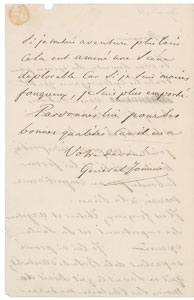 si je m'étais aventuré plus loin
cela eut amené une scène
déplorable car si je suis moins
fougueux, je suis plus emporté
Pardonnez lui pour ses
bonnes qualités
Votre dévoué
Général Jomini